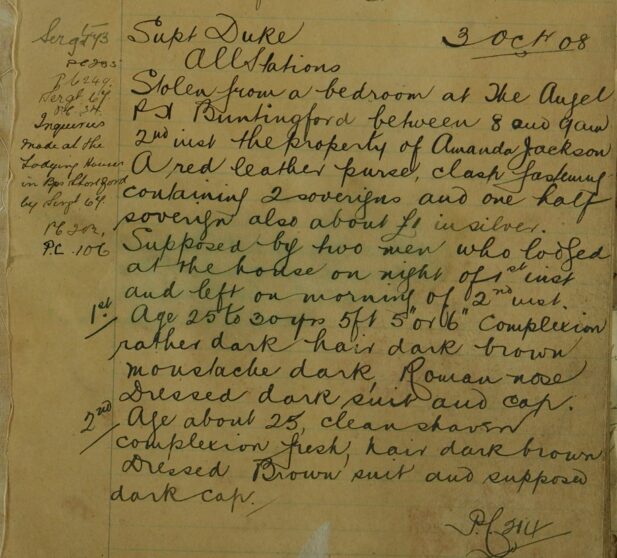 Sergt 93
PC 285
PC 249
Sergt 64
PC 34
Inquiries
made at the
Lodging Houses
in Bps Stortford
by Sergt 64
PC 202,
P.C. 106
Supt Duke 3 Oct 08
All Stations
Stolen from a bedroom at The Angel
PH Buntingford between 8 and 9am
2nd inst the property of Amanda Jackson
A red leather purse, clasp fastening
containing 2 soverigns and one half
soverign also about £1 in silver.
Supposed by two men who lodged
at the house on night of 1st inst
and left on morning of 2nd inst.
1st Age 25 to 30 yrs 5ft 5" or 6" complexion
rather dark hair dark brown
moustache dark, Roman nose
Dressed dark suit and cap.
2nd Age about 25, clean shaven
complexion fresh, hair dark brown
Dressed Brown suit and supposed
dark cap.
P.C. 214